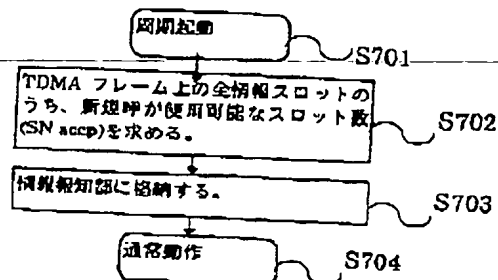 周期起動
S701
TDMA フレーム上の全情報スロットの
うち、新規呼が使用可能なスロット数
(SN accp)を求める。
S702
情報報知部に格納する。
S703
通常動作
S704